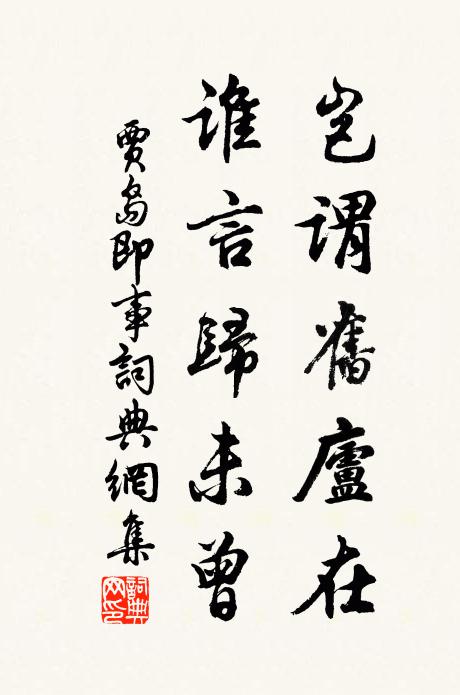 豈謂舊廬在
誰言歸未曾
賈島即事詞典網集